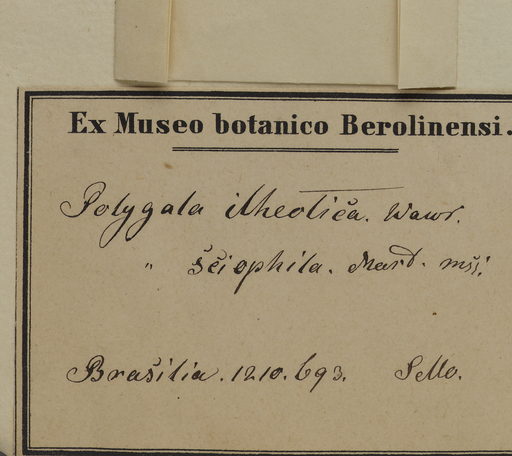 Ex Museo botanico Berolinensi.
Polygala ilheotica. Wawr.
" sciophila. Mard. mss.
Brasilia. 1210. 693. Sello.